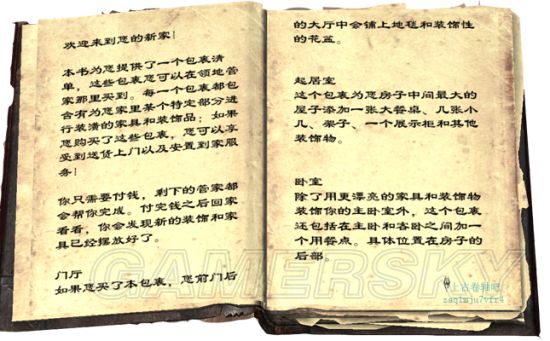 欢迎来到您的新家！
本书为您提供了一个包裹清
单，这些包裹您可以在领地管
家那里买到。每一个包裹都包
含有为您家里某个特定部分进
行装潢的家具和装饰品；如果
您购买了这些包裹，您可以享
受到送货上门以及安置到家服
务！
你只需要付钱，剩下的管家都
会帮你完成。付完钱之后回家
看看，你会发现新的装饰和家
具已经摆放好了。
门厅
如果您买了本包裹，您前门后
的大厅中会铺上地毯和装饰性
的花盆。
起居室
这个包裹为您房子中间最大的
屋子添加一张大餐桌、几张小
几、架子、一个展示柜和其他
装饰物。
卧室
除了用更漂亮的家具和装饰物
装饰你的主卧室外，这个包裹
还包括在主卧和客卧之间加一
个用餐点。具体位置在房子的
后部。
GAMERSKY
上古卷轴吧
zaqxmju7vfr4